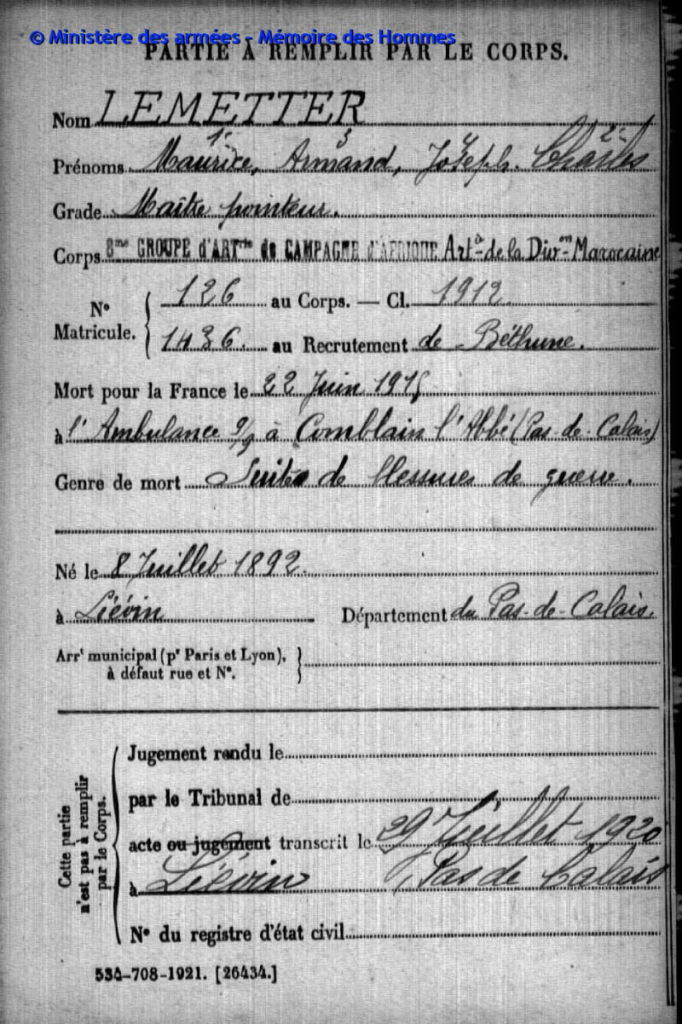 © Ministère des armées - Mémoire des Hommes
PARTIE À REMPLIR PAR LE CORPS.
Nom LEMETTER
1° 3 4 2°
Prénoms Maurice, Armand, Joseph. Charles
Grade Maître pointeur.
Corps 8me GROUPE d'ARTie de CAMPAGNE d'AFRIQUE Artie de la Divon Marocaine
N° Matricule. 126 au Corps. — Cl. 1912.
1436. au Recrutement de Béthune.
Mort pour la France le 22 Juin 1915
à l'Ambulance 9/9 à Comblain l'Abbé (Pas-de-Calais)
Genre de mort Suites de blessures de guerre.
Né le 8 Juillet 1892.
à Liévin Département du Pas-de-Calais.
Arrt municipal (pr Paris et Lyon),
à défaut rue et N°.
Cette partie n'est pas à remplir par le Corps.
Jugement rendu le
par le Tribunal de
acte ou jugement transcrit le 29 Juillet 1920
à Liévin Pas de Calais
N° du registre d'état civil
534-708-1921. [26434.]